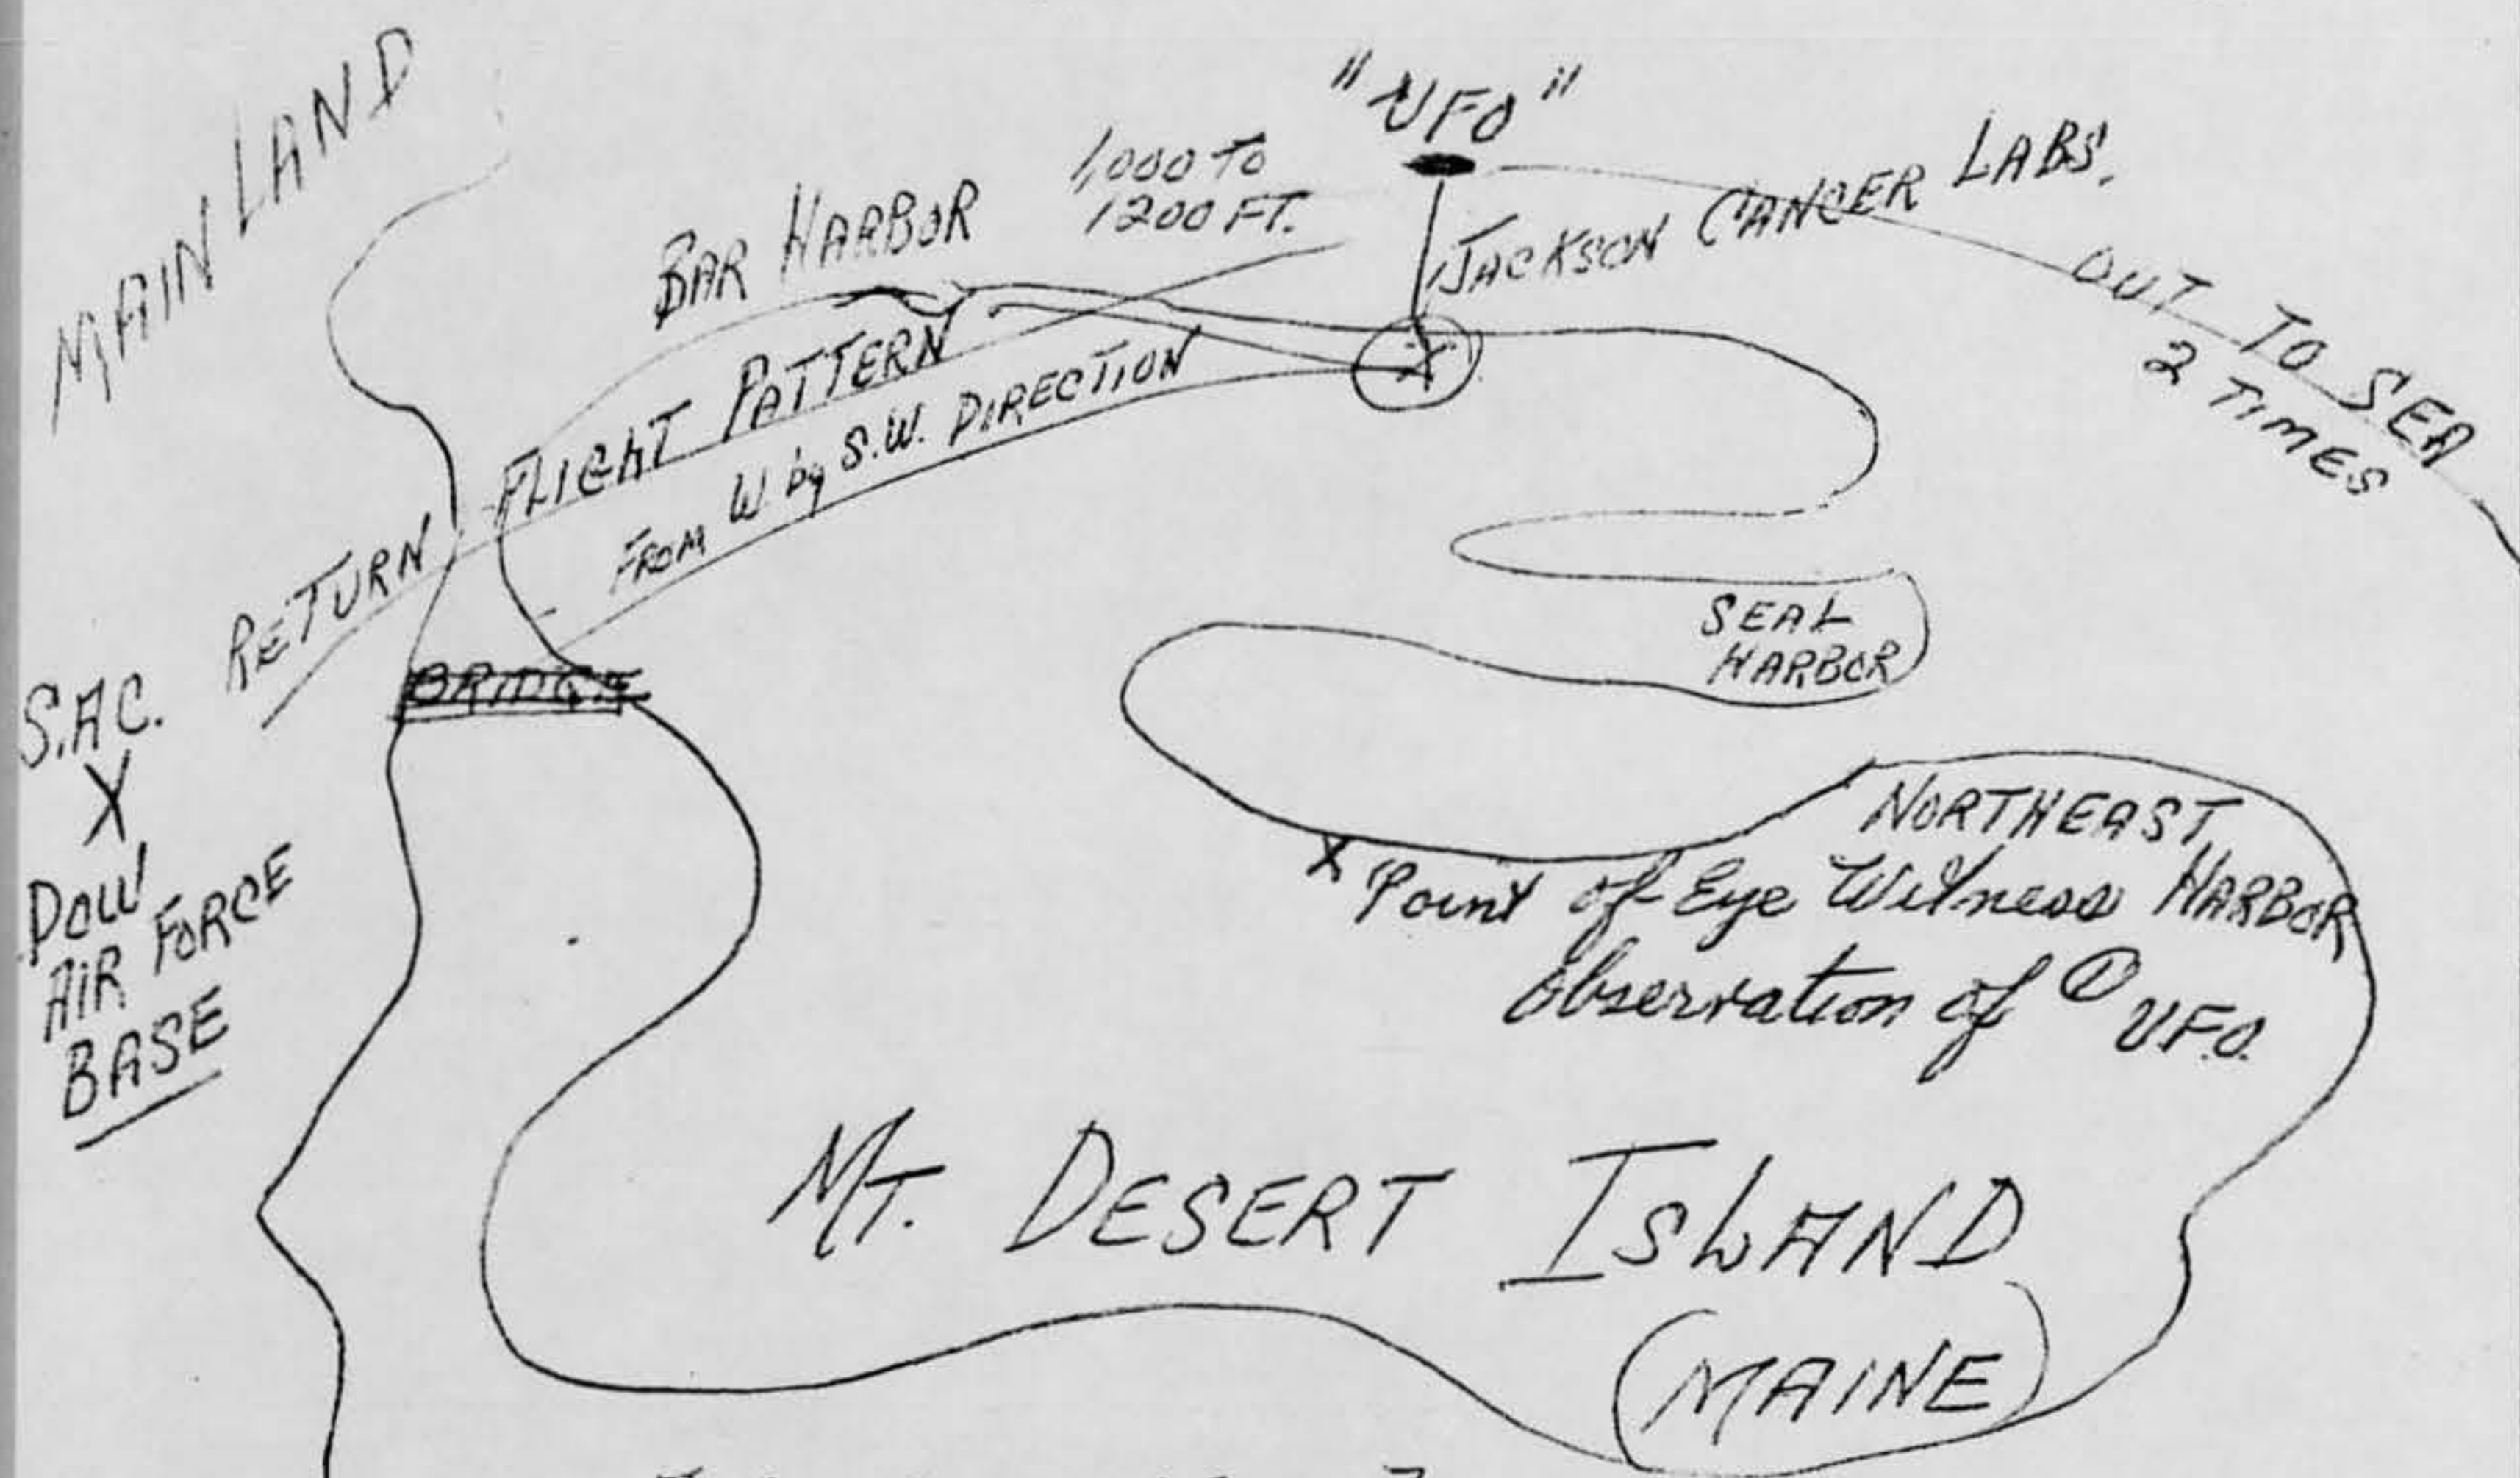 MAIN LAND
"UFO"
1,000 TO
1200 FT.
BAR HARBOR
JACKSON CANCER LABS.
OUT TO SEA
2 TIMES
FLIGHT PATTERN
FROM W by S.W. DIRECTION
X
RETURN
BRIDGE
S.A.C.
X
DOW
AIR FORCE
BASE
SEAL
HARBOR
NORTHEAST
HARBOR
X Point of Eye Witness
Observation of ① U.F.O.
MT. DESERT ISLAND
(MAINE)